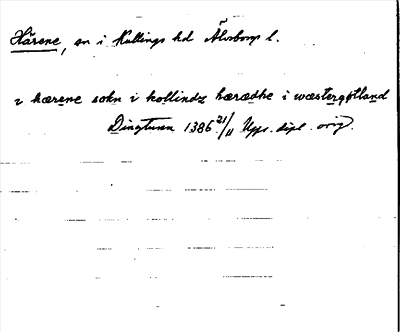 Härene, sn i Kullings hd Älvsborgs l.
i hærene sokn i kollindz hærædhe i wæstergøtland
Dingtuna 1386 21/11 Upps. dipl. orig.